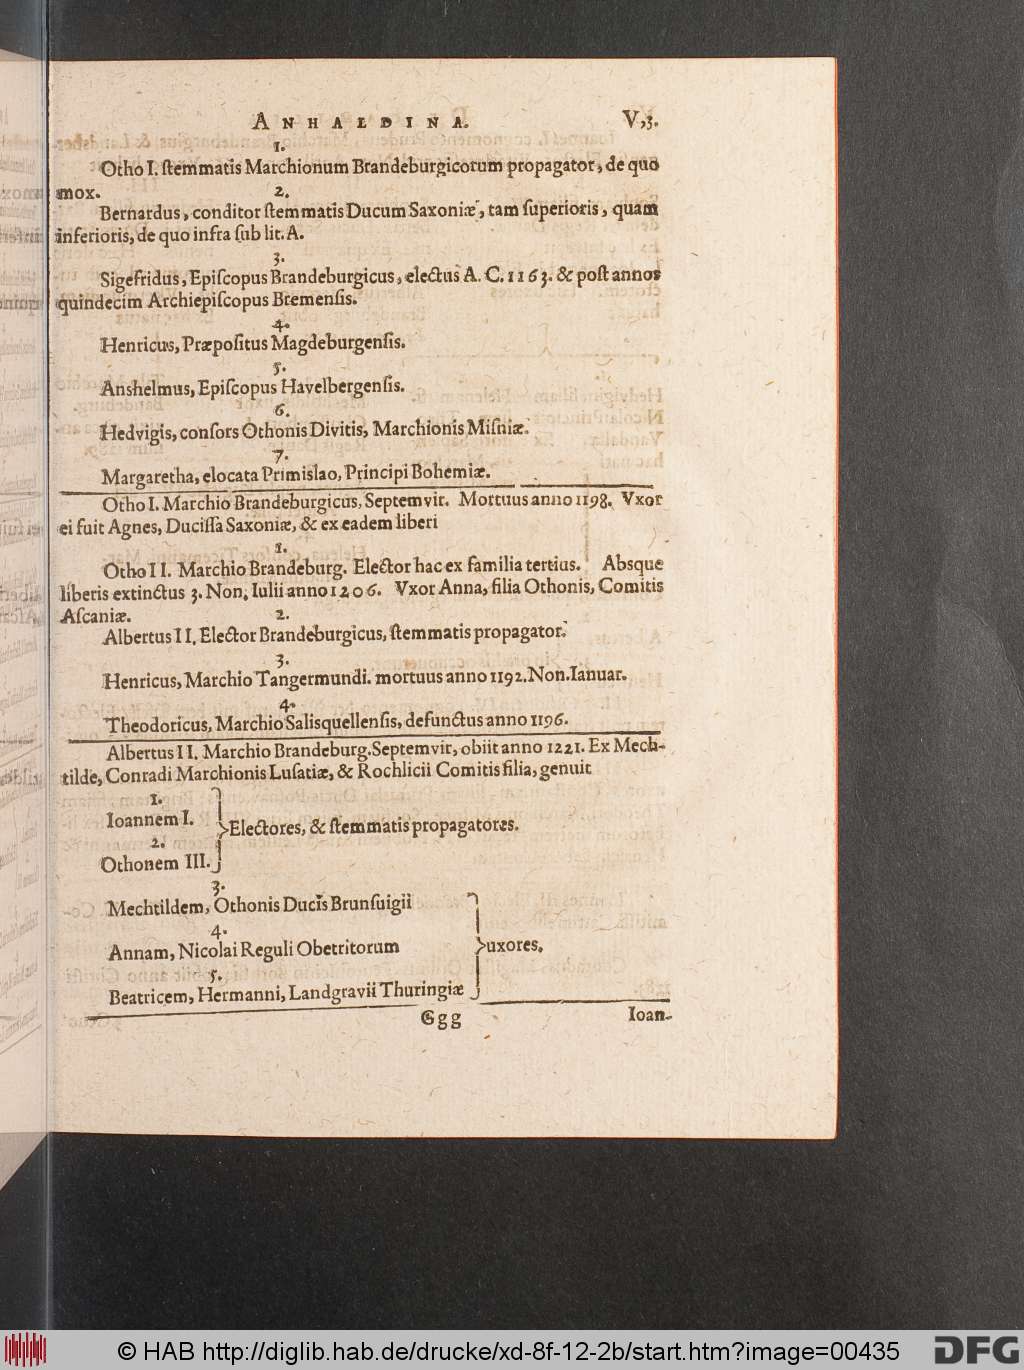 ANHALDINA. V,3.
1.
Otho I. ſtemmatis Marchionum Brandeburgicorum propagator, de quo
mox. 2.
Bernardus, conditor ſtemmatis Ducum Saxoniæ, tam ſuperioris, quam
inferioris, de quo infra ſub lit. A.
3.
Sigefridus, Epiſcopus Brandeburgicus, electus A. C. 1163. & poſt annos
quindecim Archiepiſcopus Bremenſis.
4.
Henricus, Præpoſitus Magdeburgenſis.
5.
Anshelmus, Epiſcopus Havelbergenſis.
6.
Hedvigis, conſors Othonis Divitis, Marchionis Miſniæ.
7.
Margaretha, elocata Primislao, Principi Bohemiæ.
Otho I. Marchio Brandeburgicus, Septemvir. Mortuus anno 1198. Vxor
ei fuit Agnes, Duciſſa Saxoniæ, & ex eadem liberi
1.
Otho II. Marchio Brandeburg. Elector hac ex familia tertius. Absque
liberis extinctus 3. Non. Iulii anno 1206. Vxor Anna, filia Othonis, Comitis
Aſcaniæ. 2.
Albertus II. Elector Brandeburgicus, ſtemmatis propagator.
3.
Henricus, Marchio Tangermundi. mortuus anno 1192. Non. Ianuar.
4.
Theodoricus, Marchio Salisquellenſis, defunctus anno 1196.
Albertus II. Marchio Brandeburg. Septemvir, obiit anno 1221. Ex Mech-
tilde, Conradi Marchionis Luſatiæ, & Rochlicii Comitis filia, genuit
1.
Ioannem I.
Electores, & ſtemmatis propagatores.
2.
Othonem III.
3.
Mechtildem, Othonis Ducis Brunſuigii
4.
Annam, Nicolai Reguli Obetritorum
uxores.
5.
Beatricem, Hermanni, Landgravii Thuringiæ
Ggg Ioan-
© HAB http://diglib.hab.de/drucke/xd-8f-12-2b/start.htm?image=00435
DFG